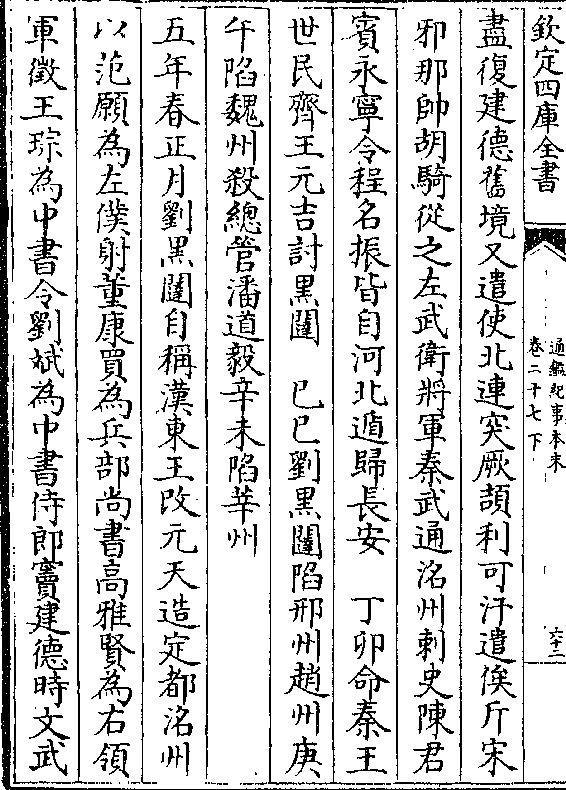 欽定四庫全書
通鑑紀事本末
卷二十七下
六十二
盡復建德舊境又遣使北連突厥頡利可汗遣俟斤宋
邪那帥胡騎從之左武衛將軍秦武通洺州刺史陳君
賓永寧令程名振皆自河北遁歸長安　丁卯命秦王
世民齊王元吉討黑闥　己巳劉黑闥陷邢州趙州庚
午陷魏州殺總管潘道毅辛未陷莘州
五年春正月劉黑闥自稱漢東王改元天造定都洺州
以范願為左僕射董康買為兵部尚書高雅賢為右領
軍徵王琮為中書令劉斌為中書侍郎竇建德時文武